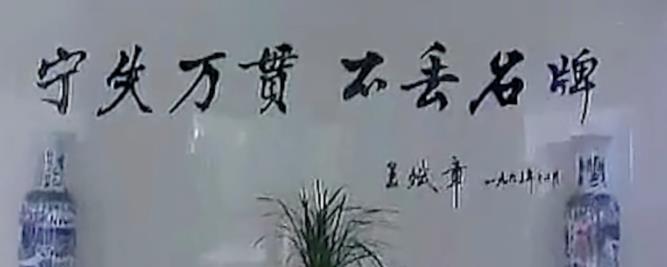 宁失万贯 不丢名牌
王斌章 一九六三年十二月